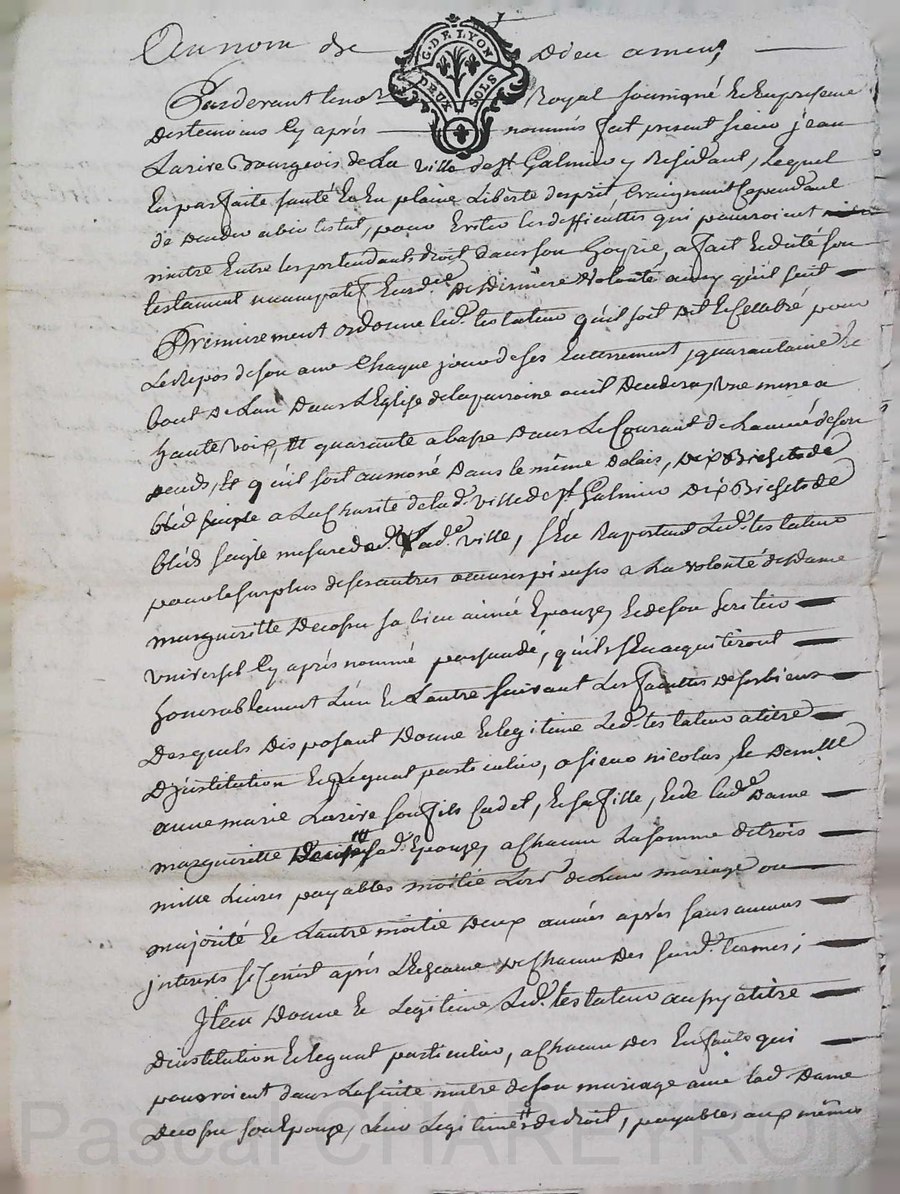 Au nom de Dieu amen,
G. DE LYON
DEUX SOLS
Pardevant le not Royal soussigné et en presence
des temoins cy après nommés fut present sieur jean
Larire Bourgeois de La ville de st Galmier y Residant, Lequel
En parfaite santé Et En pleine Liberté d'esprit, Craignant Cependant
de deceder abintestat, pour Eviter les difficultés qui pourroient
naitre Entre les pretendants droit dans son hoyrie, a fait Et dicté son
testament nuncupatif Et ordre de derniere volonté ainsy qu'il suit
Premierement ordonne led. testateur qu'il soit dit Et Cellebré pour
Le Repos de son ame Chaque jour de ses Enterrement, quarantaine Et
bout de L'an dans L'Eglise de la paroisse ou il decedera, une messe a
haute voix, Et quarante a basse dans Le Courant de L'année de son
deceds, Et qu'il soit aumoné dans le même delais, dix Bichets de
bled seigle a La Charité de lad. ville de st Galmier dix Bichets de
bled seigle mesure de lad. ville, s'En Raportant Led. testateur
pour le surplus de ses autres oeuvres pieuses a La volonté de Dame
margueritte Decosse sa bien aimée Epouze, Et de son heritier
Universel Cy après nommé persuadé, qu'ils s'En acquiteront
honnorablement L'un Et L'autre suivant Les facultés de ses biens
Desquels Disposant Donne Et legitime Led. testateur a titre
D'jnstitution Et Legat particulier, a sieur nicolas, Et Demlle
anne marie Larire son fils Cadet, Et sa fille, Et de lad. Dame
margueritte sad. Epouze, a chacun La somme de trois
mille Livres payables moitié Lors de Leur mariage ou
majorité Et L'autre moitié deux années après sans aucuns
jnterests si Ce n'est après L'Echeance de Chacun Des susd. termes;
Jtem Donne Et Legitime Led. testateur aussy a titre
D'institution Et legat particulier, a Chacun des Enfants qui
pourroient dans La suite naitre de son mariage avec lad. Dame
Decosse son Epouze, Leur Legitime de droit, payables aux mêmes
Pascal CHAREYRON